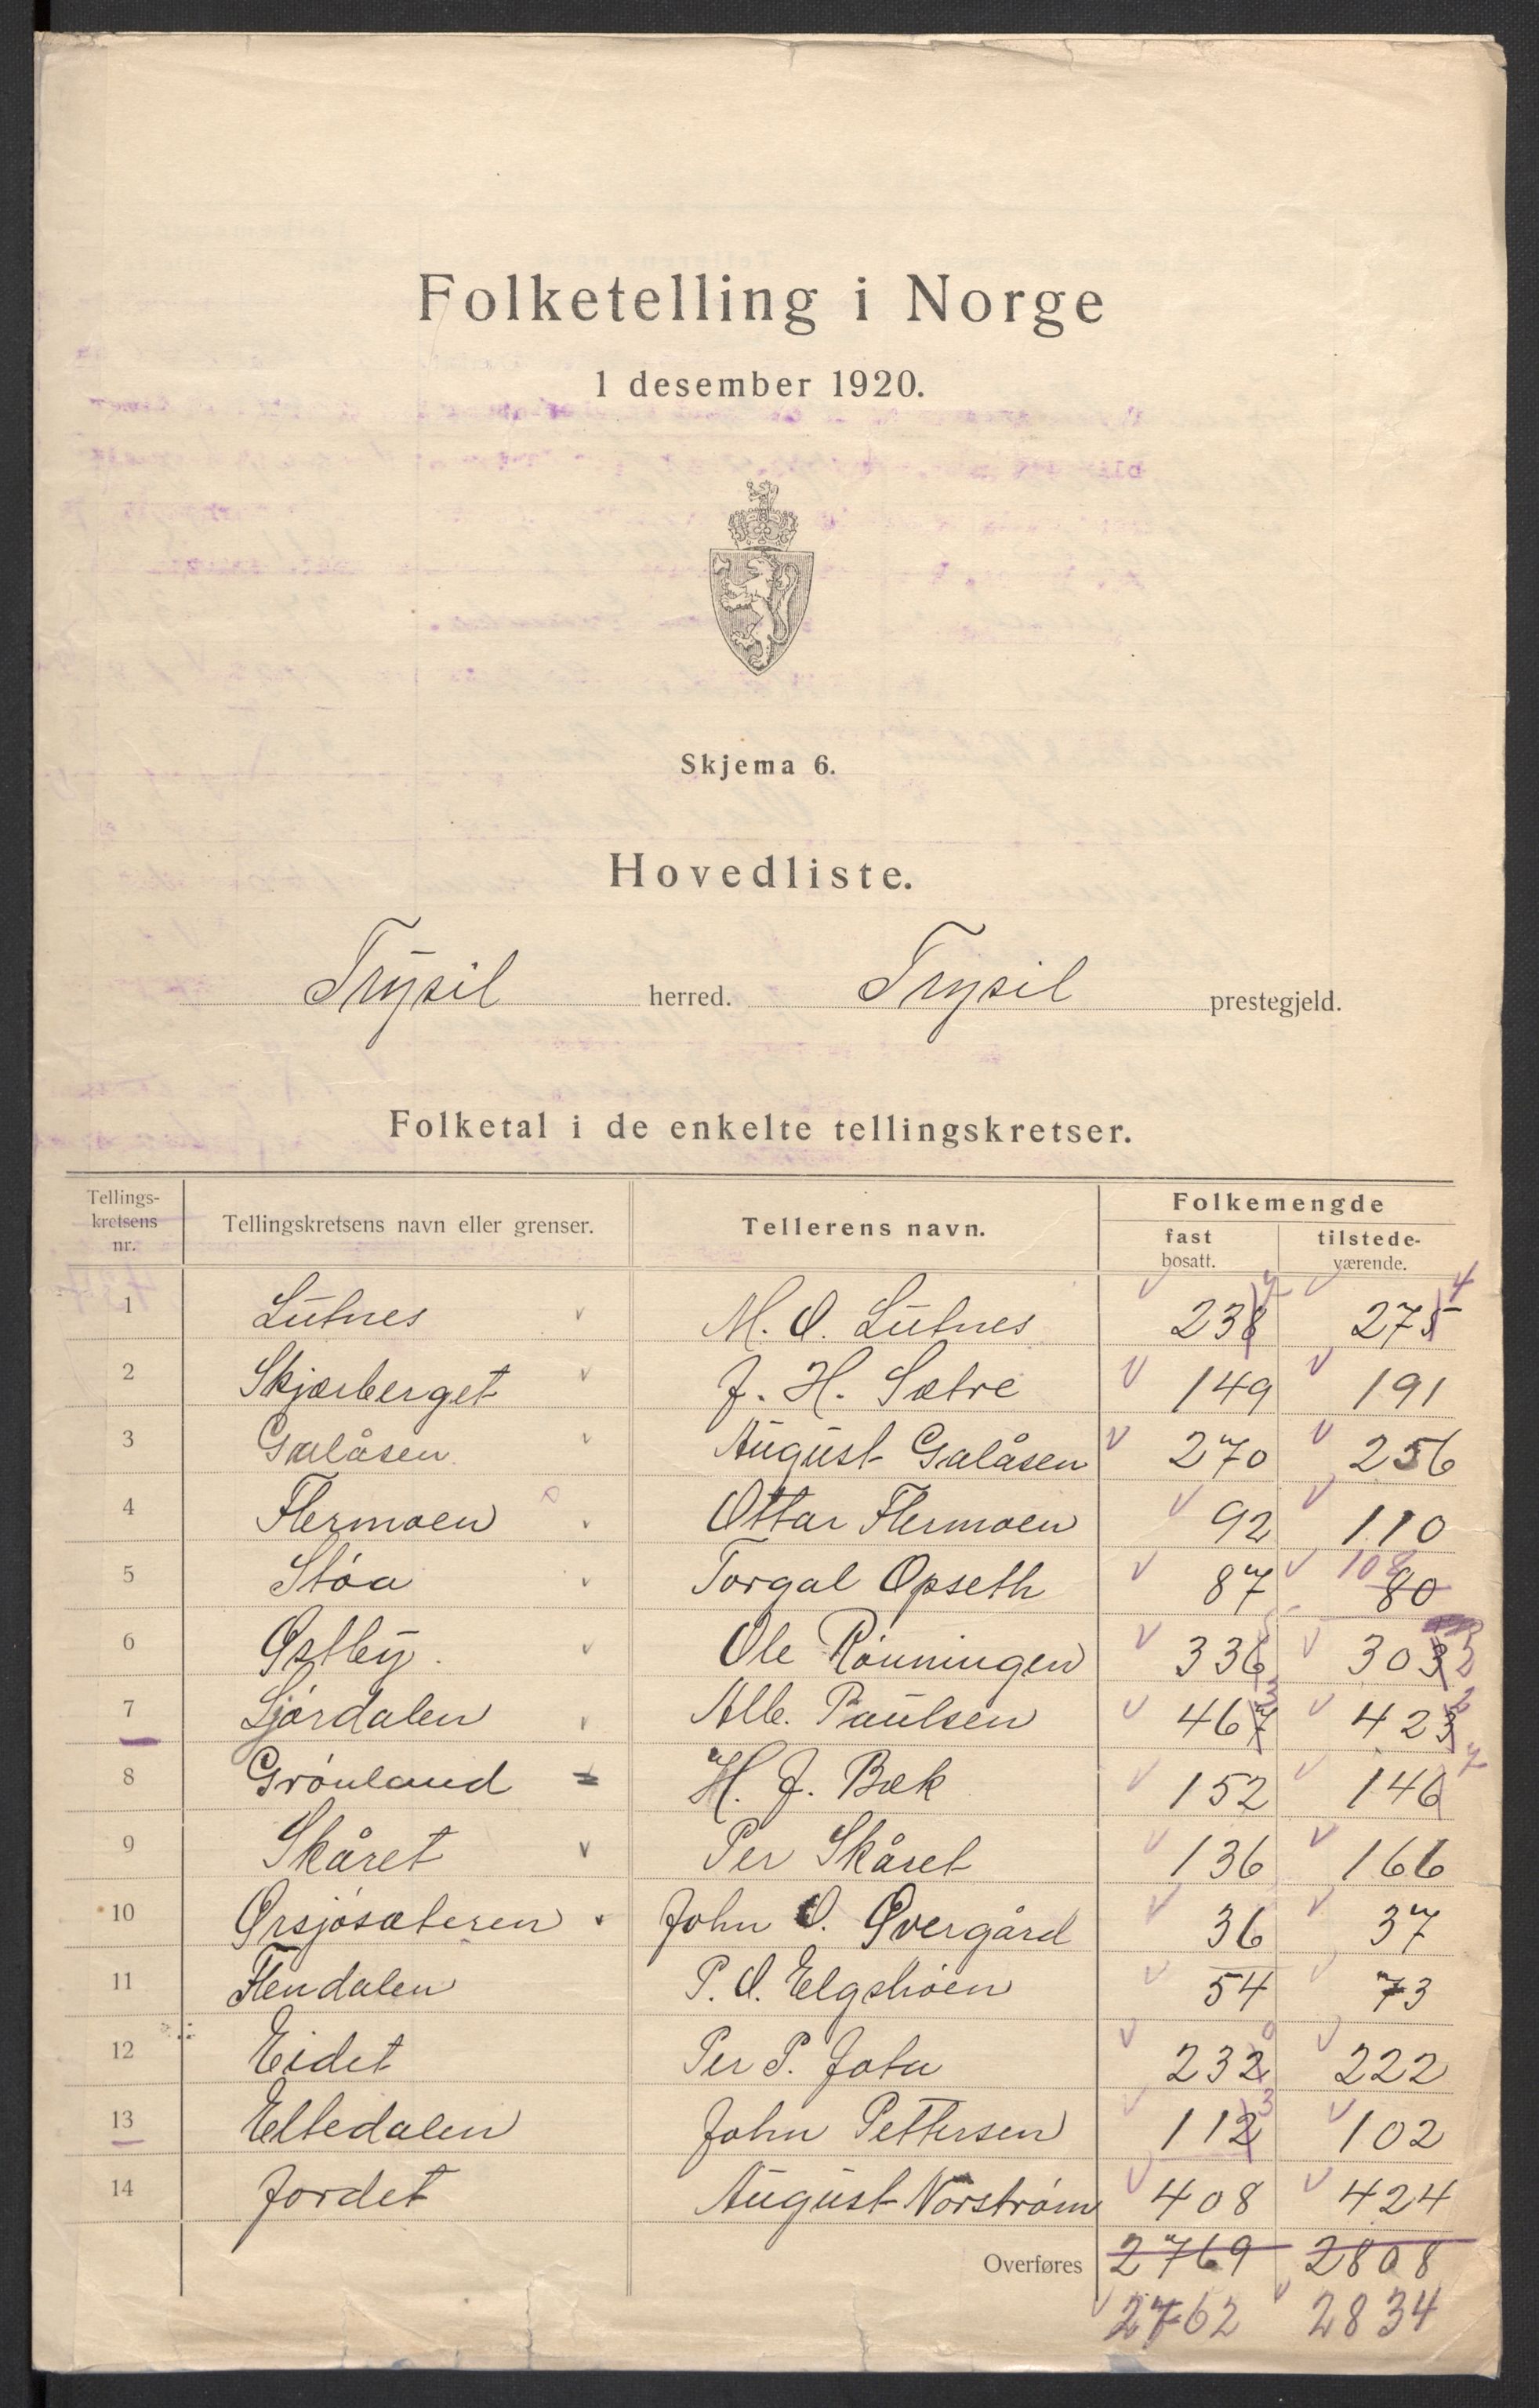 Folketelling i Norge
1 desember 1920.
Skjema 6.
Hovedliste.
Trysil herred. Trysil prestegjeld.
Folketal i de enkelte tellingskretser.
Tellings-kretsens nr. Tellingskretsens navn eller grenser. Tellerens navn. Folkemengde
fast bosatt. tilstede-værende.
1 Lutnes M. O. Lutnes 238 275 4
2 Skjærberget J. H. Sætre 149 191
3 Galåsen August Galåsen 270 256
4 Flermoen Ottar Flermoen 92 110
5 Støa Torgal Opseth 87 80 108
6 Østby. Ole Rønningen 336 303
7 Ljørdalen Alb. Paulsen 467 423 2
8 Grønland H. J. Bæk 152 146 7
9 Skåret Per Skåret 136 166
10 Ørsjøsæteren John O. Øvergård 36 37
11 Flendalen P. O. Elgshøen 54 73
12 Eidet Per P. Jota 232 0 222
13 Eltedalen John Pettersen 112 3 102
14 Jordet August Norstrøm 408 424
Overføres 2769 2808
2762 2834